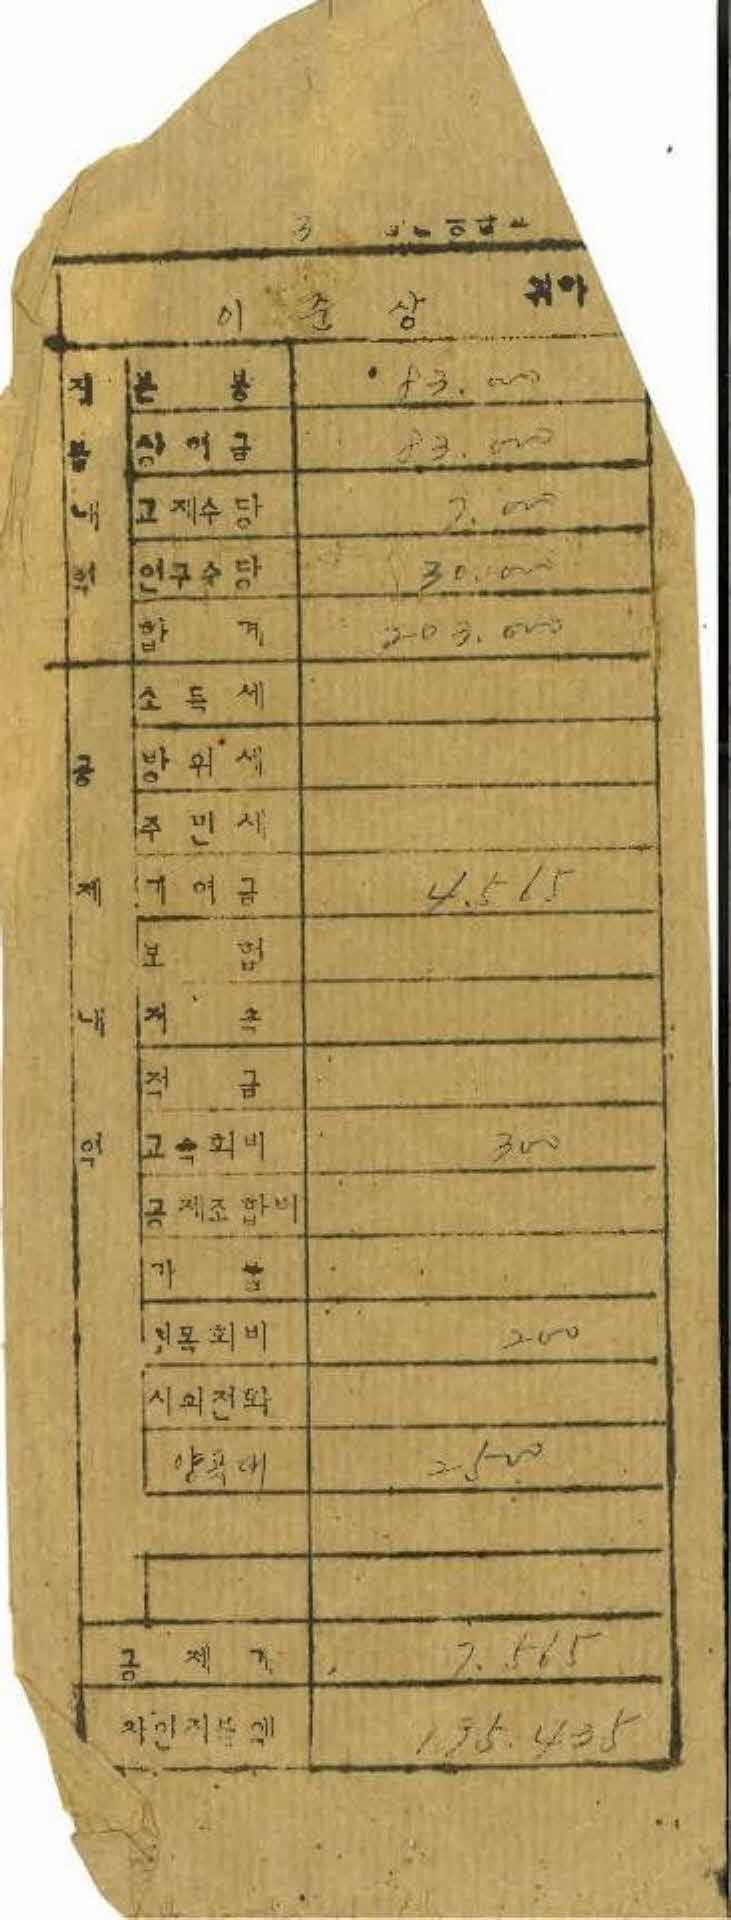 3
이 준 상 귀하
지 본 봉 83.000
불 상여금 83.000
내 교재수당 7.000
역 연구수당 30.000
합 계 203.000
소 득 세
공 방 위 세
주 민 세
제 기 여 금 4.565
보 험
내 저 축
적 금
역 고속회비 300
공제조합비
가 불
친목회비 200
시외전화
양곡대 2500
공 제 계 7.565
차인지불액 195.435